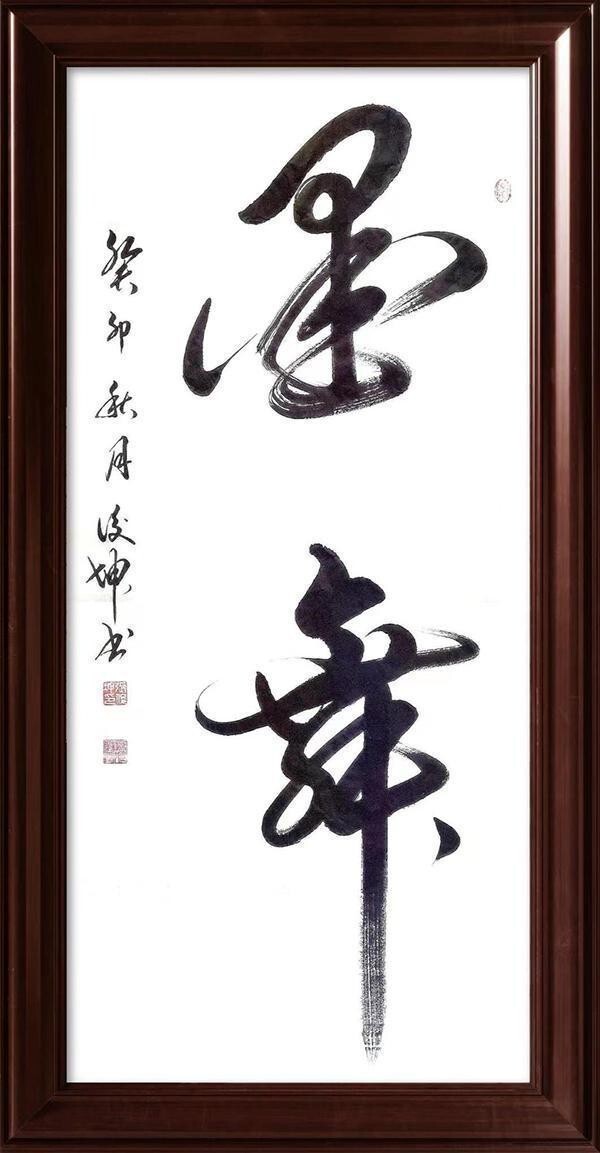 墨舞
癸卯秋月俊坤书